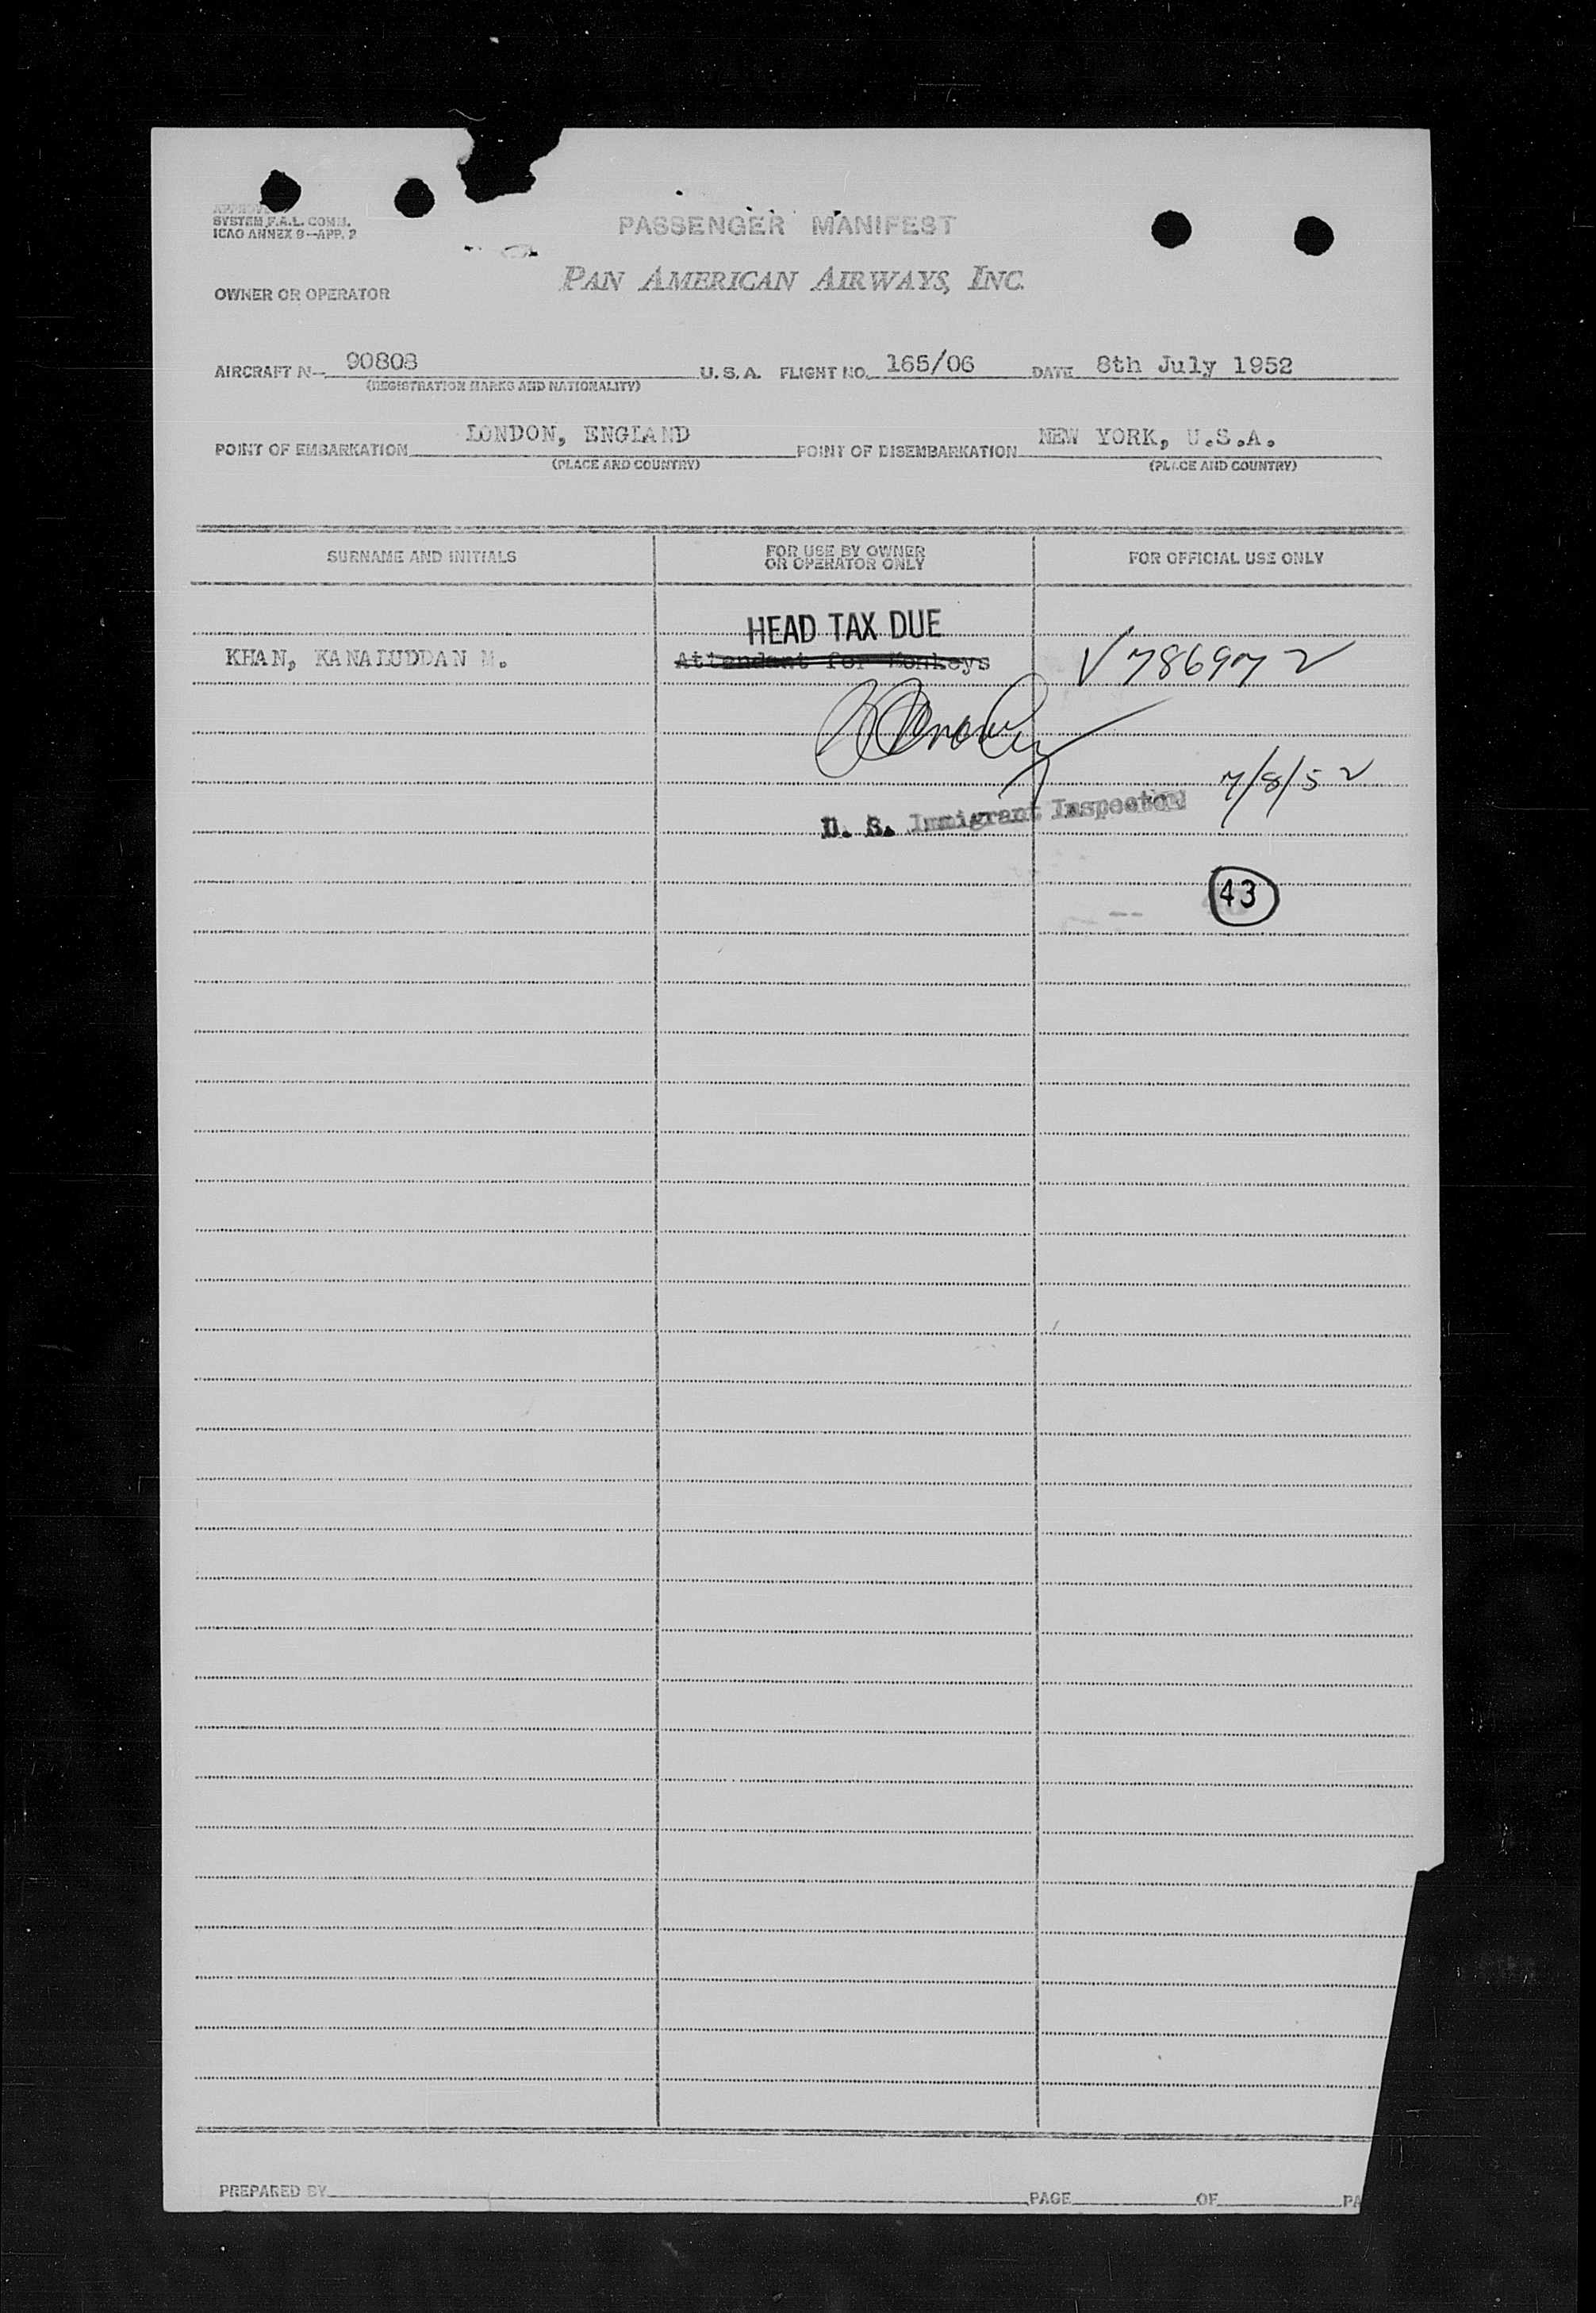 SYSTEM F.A.L. COMM.
ICAO ANNEX 9—APP. 2
PASSENGER MANIFEST
OWNER OR OPERATOR
PAN AMERICAN AIRWAYS, INC.
AIRCRAFT N- 90808 U.S.A. FLIGHT NO. 165/06 DATE 8th July 1952
(REGISTRATION MARKS AND NATIONALITY)
POINT OF EMBARKATION LONDON, ENGLAND POINT OF DISEMBARKATION NEW YORK, U.S.A.
(PLACE AND COUNTRY) (PLACE AND COUNTRY)
SURNAME AND INITIALS FOR USE BY OWNER OR OPERATOR ONLY FOR OFFICIAL USE ONLY
HEAD TAX DUE
KHAN, KANALUDDAN M. Attendant for Monkeys V786972
7/8/52
U. S. Immigrant Inspector
43
PREPARED BY PAGE OF PA